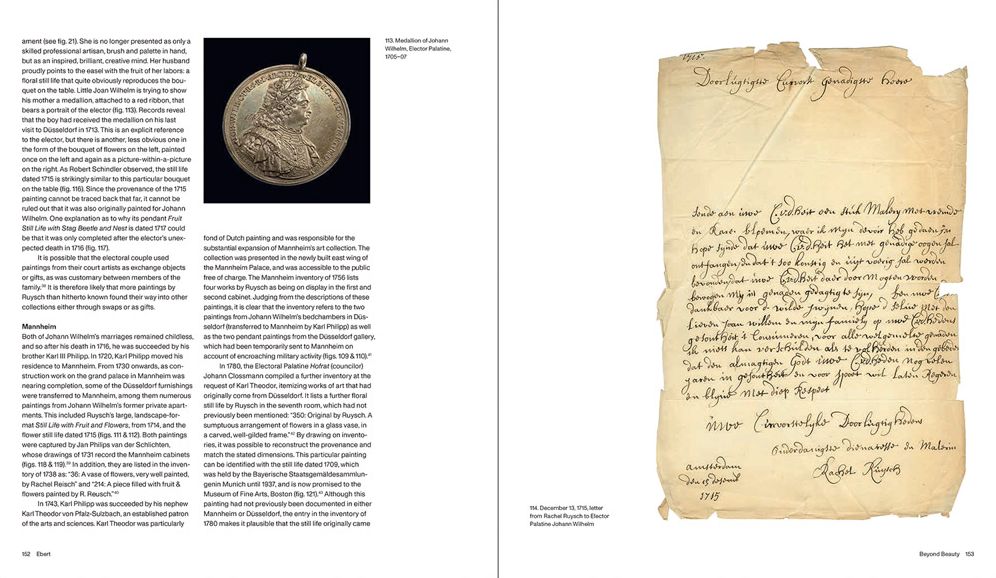 ament (see fig. 21). She is no longer presented as only a
skilled professional artisan, brush and palette in hand,
but as an inspired, brilliant, creative mind. Her husband
proudly points to the easel with the fruit of her labors: a
floral still life that quite obviously reproduces the bou-
quet on the table. Little Joan Wilhelm is trying to show
his mother a medallion, attached to a red ribbon, that
bears a portrait of the elector (fig. 113). Records reveal
that the boy had received the medallion on his last
visit to Düsseldorf in 1713. This is an explicit reference
to the elector, but there is another, less obvious one in
the form of the bouquet of flowers on the left, painted
once on the left and again as a picture-within-a-picture
on the right. As Robert Schindler observed, the still life
dated 1715 is strikingly similar to this particular bouquet
on the table (fig. 116). Since the provenance of the 1715
painting cannot be traced back that far, it cannot be
ruled out that it was also originally painted for Johann
Wilhelm. One explanation as to why its pendant Fruit
Still Life with Stag Beetle and Nest is dated 1717 could
be that it was only completed after the elector's unex-
pected death in 1716 (fig. 117).
It is possible that the electoral couple used
paintings from their court artists as exchange objects
or gifts, as was customary between members of the
family.³⁸ It is therefore likely that more paintings by
Ruysch than hitherto known found their way into other
collections either through swaps or as gifts.
Mannheim
Both of Johann Wilhelm's marriages remained childless,
and so after his death in 1716, he was succeeded by his
brother Karl III Philipp. In 1720, Karl Philipp moved his
residence to Mannheim. From 1730 onwards, as con-
struction work on the grand palace in Mannheim was
nearing completion, some of the Düsseldorf furnishings
were transferred to Mannheim, among them numerous
paintings from Johann Wilhelm's former private apart-
ments. This included Ruysch's large, landscape-for-
mat Still Life with Fruit and Flowers, from 1714, and the
flower still life dated 1715 (figs. 111 & 112). Both paintings
were captured by Jan Philips van der Schlichten,
whose drawings of 1731 record the Mannheim cabinets
(figs. 118 & 119).³⁹ In addition, they are listed in the inven-
tory of 1738 as: "36: A vase of flowers, very well painted,
by Rachel Reisch" and "214: A piece filled with fruit &
flowers painted by R. Reusch."⁴⁰
In 1743, Karl Philipp was succeeded by his nephew
Karl Theodor von Pfalz-Sulzbach, an established patron
of the arts and sciences. Karl Theodor was particularly
152 Ebert
113. Medallion of Johann
Wilhelm, Elector Palatine,
1705–07
fond of Dutch painting and was responsible for the
substantial expansion of Mannheim's art collection. The
collection was presented in the newly built east wing of
the Mannheim Palace, and was accessible to the public
free of charge. The Mannheim inventory of 1756 lists
four works by Ruysch as being on display in the first and
second cabinet. Judging from the descriptions of these
paintings, it is clear that the inventory refers to the two
paintings from Johann Wilhelm's bedchambers in Düs-
seldorf (transferred to Mannheim by Karl Philipp) as well
as the two pendant paintings from the Düsseldorf gallery,
which had been temporarily sent to Mannheim on
account of encroaching military activity (figs. 109 & 110).⁴¹
In 1780, the Electoral Palatine Hofrat (councilor)
Johann Clossmann compiled a further inventory at the
request of Karl Theodor, itemizing works of art that had
originally come from Düsseldorf. It lists a further floral
still life by Ruysch in the seventh room, which had not
previously been mentioned: "350: Original by Ruysch. A
sumptuous arrangement of flowers in a glass vase, in
a carved, well-gilded frame."⁴² By drawing on invento-
ries, it was possible to reconstruct the provenance and
match the stated dimensions. This particular painting
can be identified with the still life dated 1709, which
was held by the Bayerische Staatsgemäldesammlun-
genin Munich until 1937, and is now promised to the
Museum of Fine Arts, Boston (fig. 121).⁴³ Although this
painting had not previously been documented in either
Mannheim or Düsseldorf, the entry in the inventory of
1780 makes it plausible that the still life originally came
1715.
Doorlugtigste Genadigste heere
sende aen uwe een stuk Malery met vremde
en Rare bloemen, waer ik mijn devoir heb gedaen in
hope sijnde dat uwe het met genadige oogen sal
ontfangen, en dat
dat uwe daer door mogten worden
bewogen mij in genaden gedagtig te sijn, ben uwe
dankbaer voor d wilde swijnen, hope d selve met den
Lieven Joan willem en mijn familij op uwe
gesontheit
dat den almagtigen Godt uwe nog velen
jaren in gesontheit en voor spoet wil Laten Regeren
en blijve Met diep Respect
Uwe Cheurvorstelyke Doorlugtigheden
onderdanigste dienaresse en Malerin
Rachel Ruysch
amsterdam
den 13 desemb
1715
114. December 13, 1715, letter
from Rachel Ruysch to Elector
Palatine Johann Wilhelm
Beyond Beauty 153